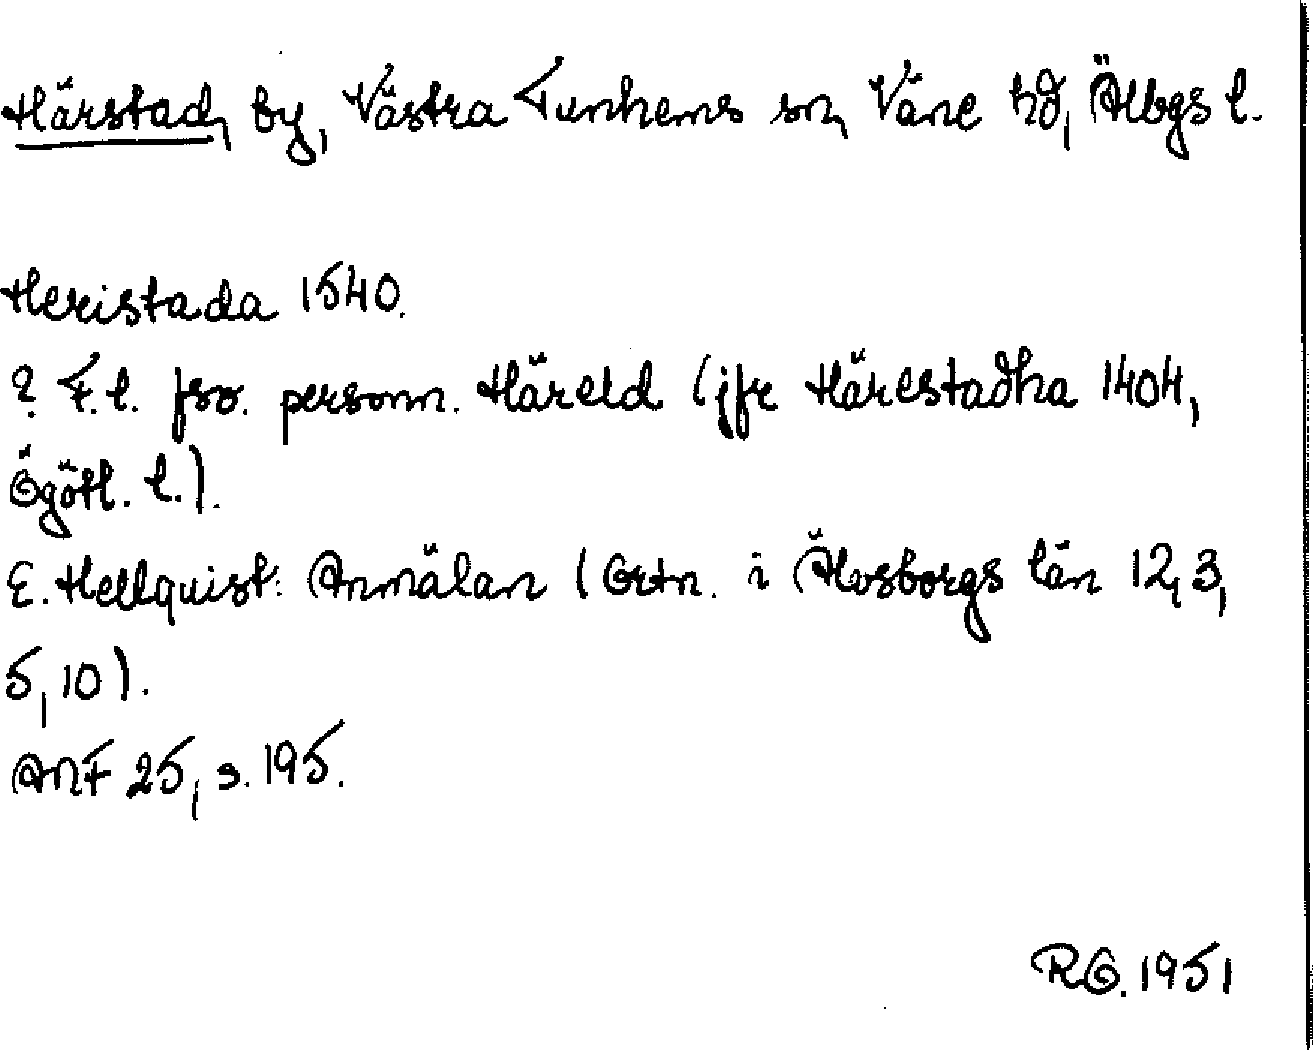 Härstad, by, Västra Tunhems sn, Väne hd, Älbgs l.
Heristada 1540.
? F.l. fsv. personn. Häreld (jfr Härestadha 1404,
Ögötl. l.).
E. Hellquist: Anmälan (Ortn. i Älvsborgs län 12, 3,
5, 10).
ANF 25, s. 195.
RO. 1951